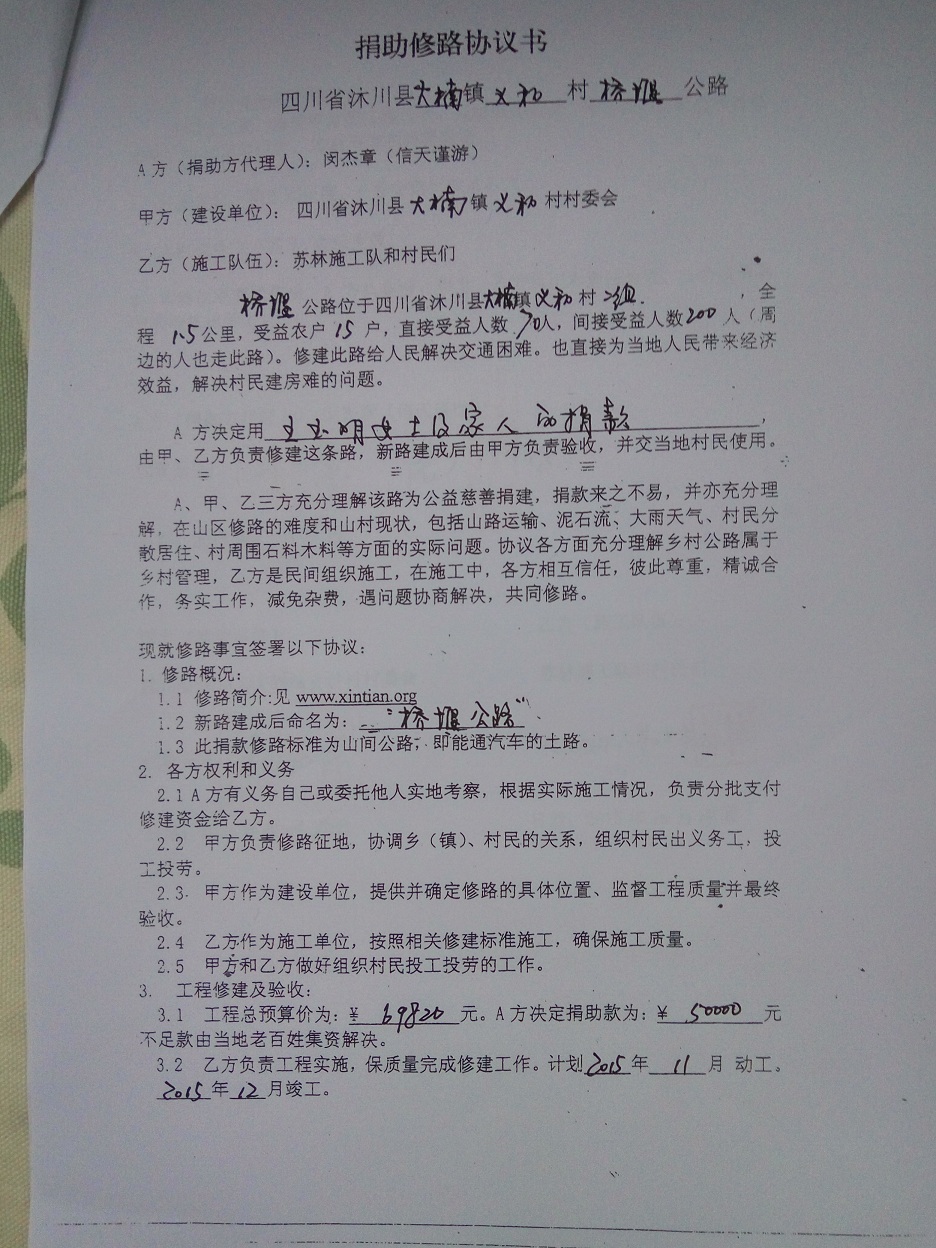 捐助修路协议书
四川省沐川县大楠镇义和村桥堰公路
A方（捐助方代理人）：闵杰章（信天谨游）
甲方（建设单位）：四川省沐川县大楠镇义和村村委会
乙方（施工队伍）：苏林施工队和村民们
桥堰公路位于四川省沐川县大楠镇义和村 组 ，全
程1.5公里，受益农户15户，直接受益人数70人，间接受益人数200人（周
边的人也走此路）。修建此路给人民解决交通困难。也直接为当地人民带来经济
效益，解决村民建房难的问题。
A方决定用王玉明女士及家人的捐款，
由甲、乙方负责修建这条路，新路建成后由甲方负责验收，并交当地村民使用。
A、甲、乙三方充分理解该路为公益慈善捐建，捐款来之不易，并亦充分理
解，在山区修路的难度和山村现状，包括山路运输、泥石流、大雨天气、村民分
散居住、村周围石料木料等方面的实际问题。协议各方面充分理解乡村公路属于
乡村管理，乙方是民间组织施工，在施工中，各方相互信任，彼此尊重，精诚合
作，务实工作，减免杂费，遇问题协商解决，共同修路。
现就修路事宜签署以下协议：
1. 修路概况：
1.1 修路简介:见 www.xintian.org
1.2 新路建成后命名为：“桥堰公路”
1.3 此捐款修路标准为山间公路，即能通汽车的土路。
2. 各方权利和义务
2.1 A方有义务自己或委托他人实地考察，根据实际施工情况，负责分批支付
修建资金给乙方。
2.2 甲方负责修路征地，协调乡（镇）、村民的关系，组织村民出义务工，投
工投劳。
2.3 甲方作为建设单位，提供并确定修路的具体位置、监督工程质量并最终
验收。
2.4 乙方作为施工单位，按照相关修建标准施工，确保施工质量。
2.5 甲方和乙方做好组织村民投工投劳的工作。
3. 工程修建及验收：
3.1 工程总预算价为：￥ 69820 元。A方决定捐助款为：￥ 50000 元
不足款由当地老百姓集资解决。
3.2 乙方负责工程实施，保质量完成修建工作。计划2015年 11 月 动工。
2015年12月竣工。